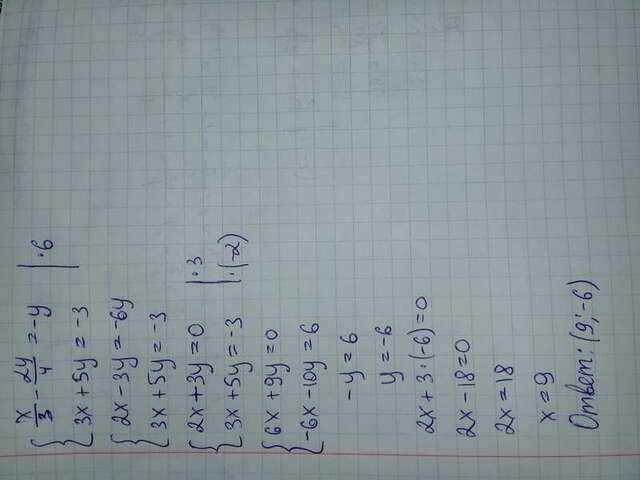 x/3 - 2y/4 = -y | · 6
3x + 5y = -3
2x - 3y = -6y
3x + 5y = -3
2x + 3y = 0 | · 3
3x + 5y = -3 | · (-2)
6x + 9y = 0
-6x - 10y = 6
-y = 6
y = -6
2x + 3 · (-6) = 0
2x - 18 = 0
2x = 18
x = 9
Ответ: (9; -6)